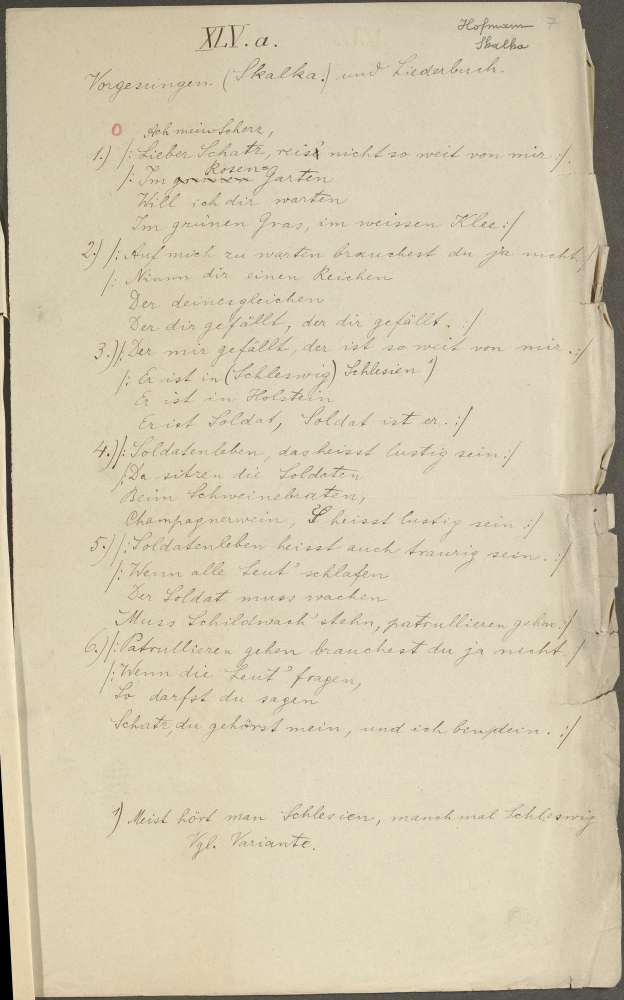 XLV. a.
Hofmann 7
Skalka
Vorgesungen. (Skalka.) und Liederbuch.
O Ach mein Scherz,
1.) /: Lieber Schatz, reis' nicht so weit von mir :/.
Rosen=
/: Im Garten
Will ich dir warten
Im grünen Gras, im weissen Klee :/
2.) /: Auf mich zu warten brauchest du ja nicht. :/
/: Nimm dir einen Reichen
Der deinesgleichen
Der dir gefällt, der dir gefällt. :/
3.) /: Der mir gefällt, der ist so weit von mir. :/
/: Er ist in (Schleswig) Schlesien 1)
Er ist in Holstein
Er ist Soldat, Soldat ist er. :/
4.) /: Soldatenleben, das heisst lustig sein :/
/: Da sitzen die Soldaten
Beim Schweinebraten,
Champagnerwein, 's heisst lustig sein :/
5.) /: Soldatenleben heisst auch traurig sein. :/
/: Wenn alle Leut' schlafen
Der Soldat muss wachen
Muss Schildwach' stehn, patrullieren gehen :/
6.) /: Patrullieren gehen brauchest du ja nicht. /
/: Wenn die Leut' fragen,
So darfst du sagen
Schatz, du gehörst mein, und ich bin dein. :/
1) Meist hört man Schlesien, manchmal Schleswig
Vgl. Variante.